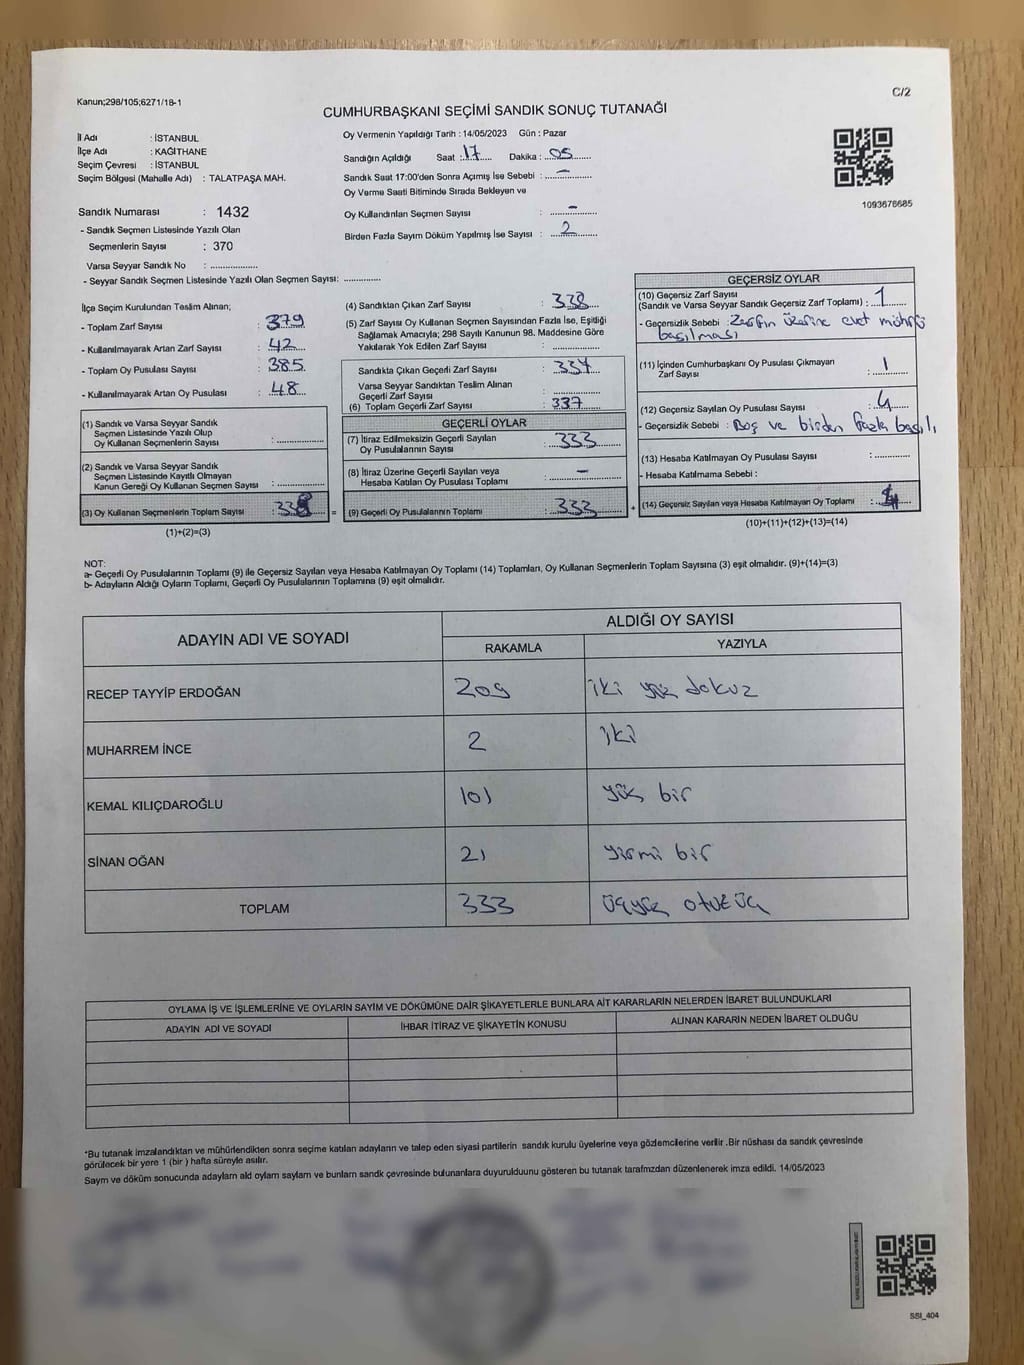 Kanun;298/105;6271/18-1
C/2
CUMHURBAŞKANI SEÇİMİ SANDIK SONUÇ TUTANAĞI
İl Adı : İSTANBUL
İlçe Adı : KAĞITHANE
Seçim Çevresi : İSTANBUL
Seçim Bölgesi (Mahalle Adı) : TALATPAŞA MAH.
Sandık Numarası : 1432
- Sandık Seçmen Listesinde Yazılı Olan
Seçmenlerin Sayısı : 370
Varsa Seyyar Sandık No : ................
- Seyyar Sandık Seçmen Listesinde Yazılı Olan Seçmen Sayısı: ............
Oy Vermenin Yapıldığı Tarih : 14/05/2023 Gün : Pazar
Sandığın Açıldığı Saat : 17 Dakika : 05
Sandık Saat 17:00'den Sonra Açımış İse Sebebi : -
Oy Verme Saati Bitiminde Sırada Bekleyen ve
Oy Kullandırılan Seçmen Sayısı : -
Birden Fazla Sayım Döküm Yapılmış İse Sayısı : 2
1093676685
İlçe Seçim Kurulundan Teslim Alınan;
- Toplam Zarf Sayısı : 379
- Kullanılmayarak Artan Zarf Sayısı : 42
- Toplam Oy Pusulası Sayısı : 385
- Kullanılmayarak Artan Oy Pusulası : 48
(1) Sandık ve Varsa Seyyar Sandık
Seçmen Listesinde Yazılı Olup
Oy Kullanan Seçmenlerin Sayısı : ............
(2) Sandık ve Varsa Seyyar Sandık
Seçmen Listesinde Kayıtlı Olmayan
Kanun Gereği Oy Kullanan Seçmen Sayısı : ............
(3) Oy Kullanan Seçmenlerin Toplam Sayısı : 338 =
(1)+(2)=(3)
(4) Sandıktan Çıkan Zarf Sayısı : 338
(5) Zarf Sayısı Oy Kullanan Seçmen Sayısından Fazla İse, Eşitliği
Sağlamak Amacıyla; 298 Sayılı Kanunun 98. Maddesine Göre
Yakılarak Yok Edilen Zarf Sayısı : ............
Sandıkta Çıkan Geçerli Zarf Sayısı : 337
Varsa Seyyar Sandıktan Teslim Alınan
Geçerli Zarf Sayısı : ............
(6) Toplam Geçerli Zarf Sayısı : 337
GEÇERLİ OYLAR
(7) İtiraz Edilmeksizin Geçerli Sayılan
Oy Pusulasının Sayısı : 333
(8) İtiraz Üzerine Geçerli Sayılan veya
Hesaba Katılan Oy Pusulası Toplamı : -
(9) Geçerli Oy Pusulalarının Toplamı : 333 +
GEÇERSİZ OYLAR
(10) Geçersiz Zarf Sayısı
(Sandık ve Varsa Seyyar Sandık Geçersiz Zarf Toplamı) : 1
- Geçersizlik Sebebi : Zarfın üzerine evet mührü
basılması
(11) İçinden Cumhurbaşkanı Oy Pusulası Çıkmayan
Zarf Sayısı : 1
(12) Geçersiz Sayılan Oy Pusulası Sayısı : 4
- Geçersizlik Sebebi : Boş ve birden fazla basılı
(13) Hesaba Katılmayan Oy Pusulası Sayısı : ............
- Hesaba Katılmama Sebebi :
(14) Geçersiz Sayılan veya Hesaba Katılmayan Oy Toplamı :
(10)+(11)+(12)+(13)=(14)
NOT:
a- Geçerli Oy Pusulalarının Toplamı (9) ile Geçersiz Sayılan veya Hesaba Katılmayan Oy Toplamı (14) Toplamları, Oy Kullanan Seçmenlerin Toplam Sayısına (3) eşit olmalıdır. (9)+(14)=(3)
b- Adayların Aldığı Oyların Toplamı, Geçerli Oy Pusulalarının Toplamına (9) eşit olmalıdır.
ADAYIN ADI VE SOYADI ALDIĞI OY SAYISI
RAKAMLA YAZIYLA
RECEP TAYYİP ERDOĞAN 209 iki yüz dokuz
MUHARREM İNCE 2 iki
KEMAL KILIÇDAROĞLU 101 yüz bir
SİNAN OĞAN 21 yirmi bir
TOPLAM 333 üçyüz otuz üç
OYLAMA İŞ VE İŞLEMLERİNE VE OYLARIN SAYIM VE DÖKÜMÜNE DAİR ŞİKAYETLERLE BUNLARA AİT KARARLARIN NELERDEN İBARET BULUNDUKLARI
ADAYIN ADI VE SOYADI İHBAR İTİRAZ VE ŞİKAYETİN KONUSU ALINAN KARARIN NEDEN İBARET OLDUĞU
*Bu tutanak imzalandıktan ve mühürlendikten sonra seçime katılan adayların ve talep eden siyasi partilerin sandık kurulu üyelerine veya gözlemcilerine verilir .Bir nüshası da sandık çevresinde
görülecek bir yere 1 (bir ) hafta süreyle asılır.
Saym ve döküm sonucunda adaylarn ald oylarn saylarn ve bunlarn sandk çevresinde bulunanlara duyurulduunu gösteren bu tutanak tarafmzdan düzenlenerek imza edildi. 14/05/2023
SSI_404